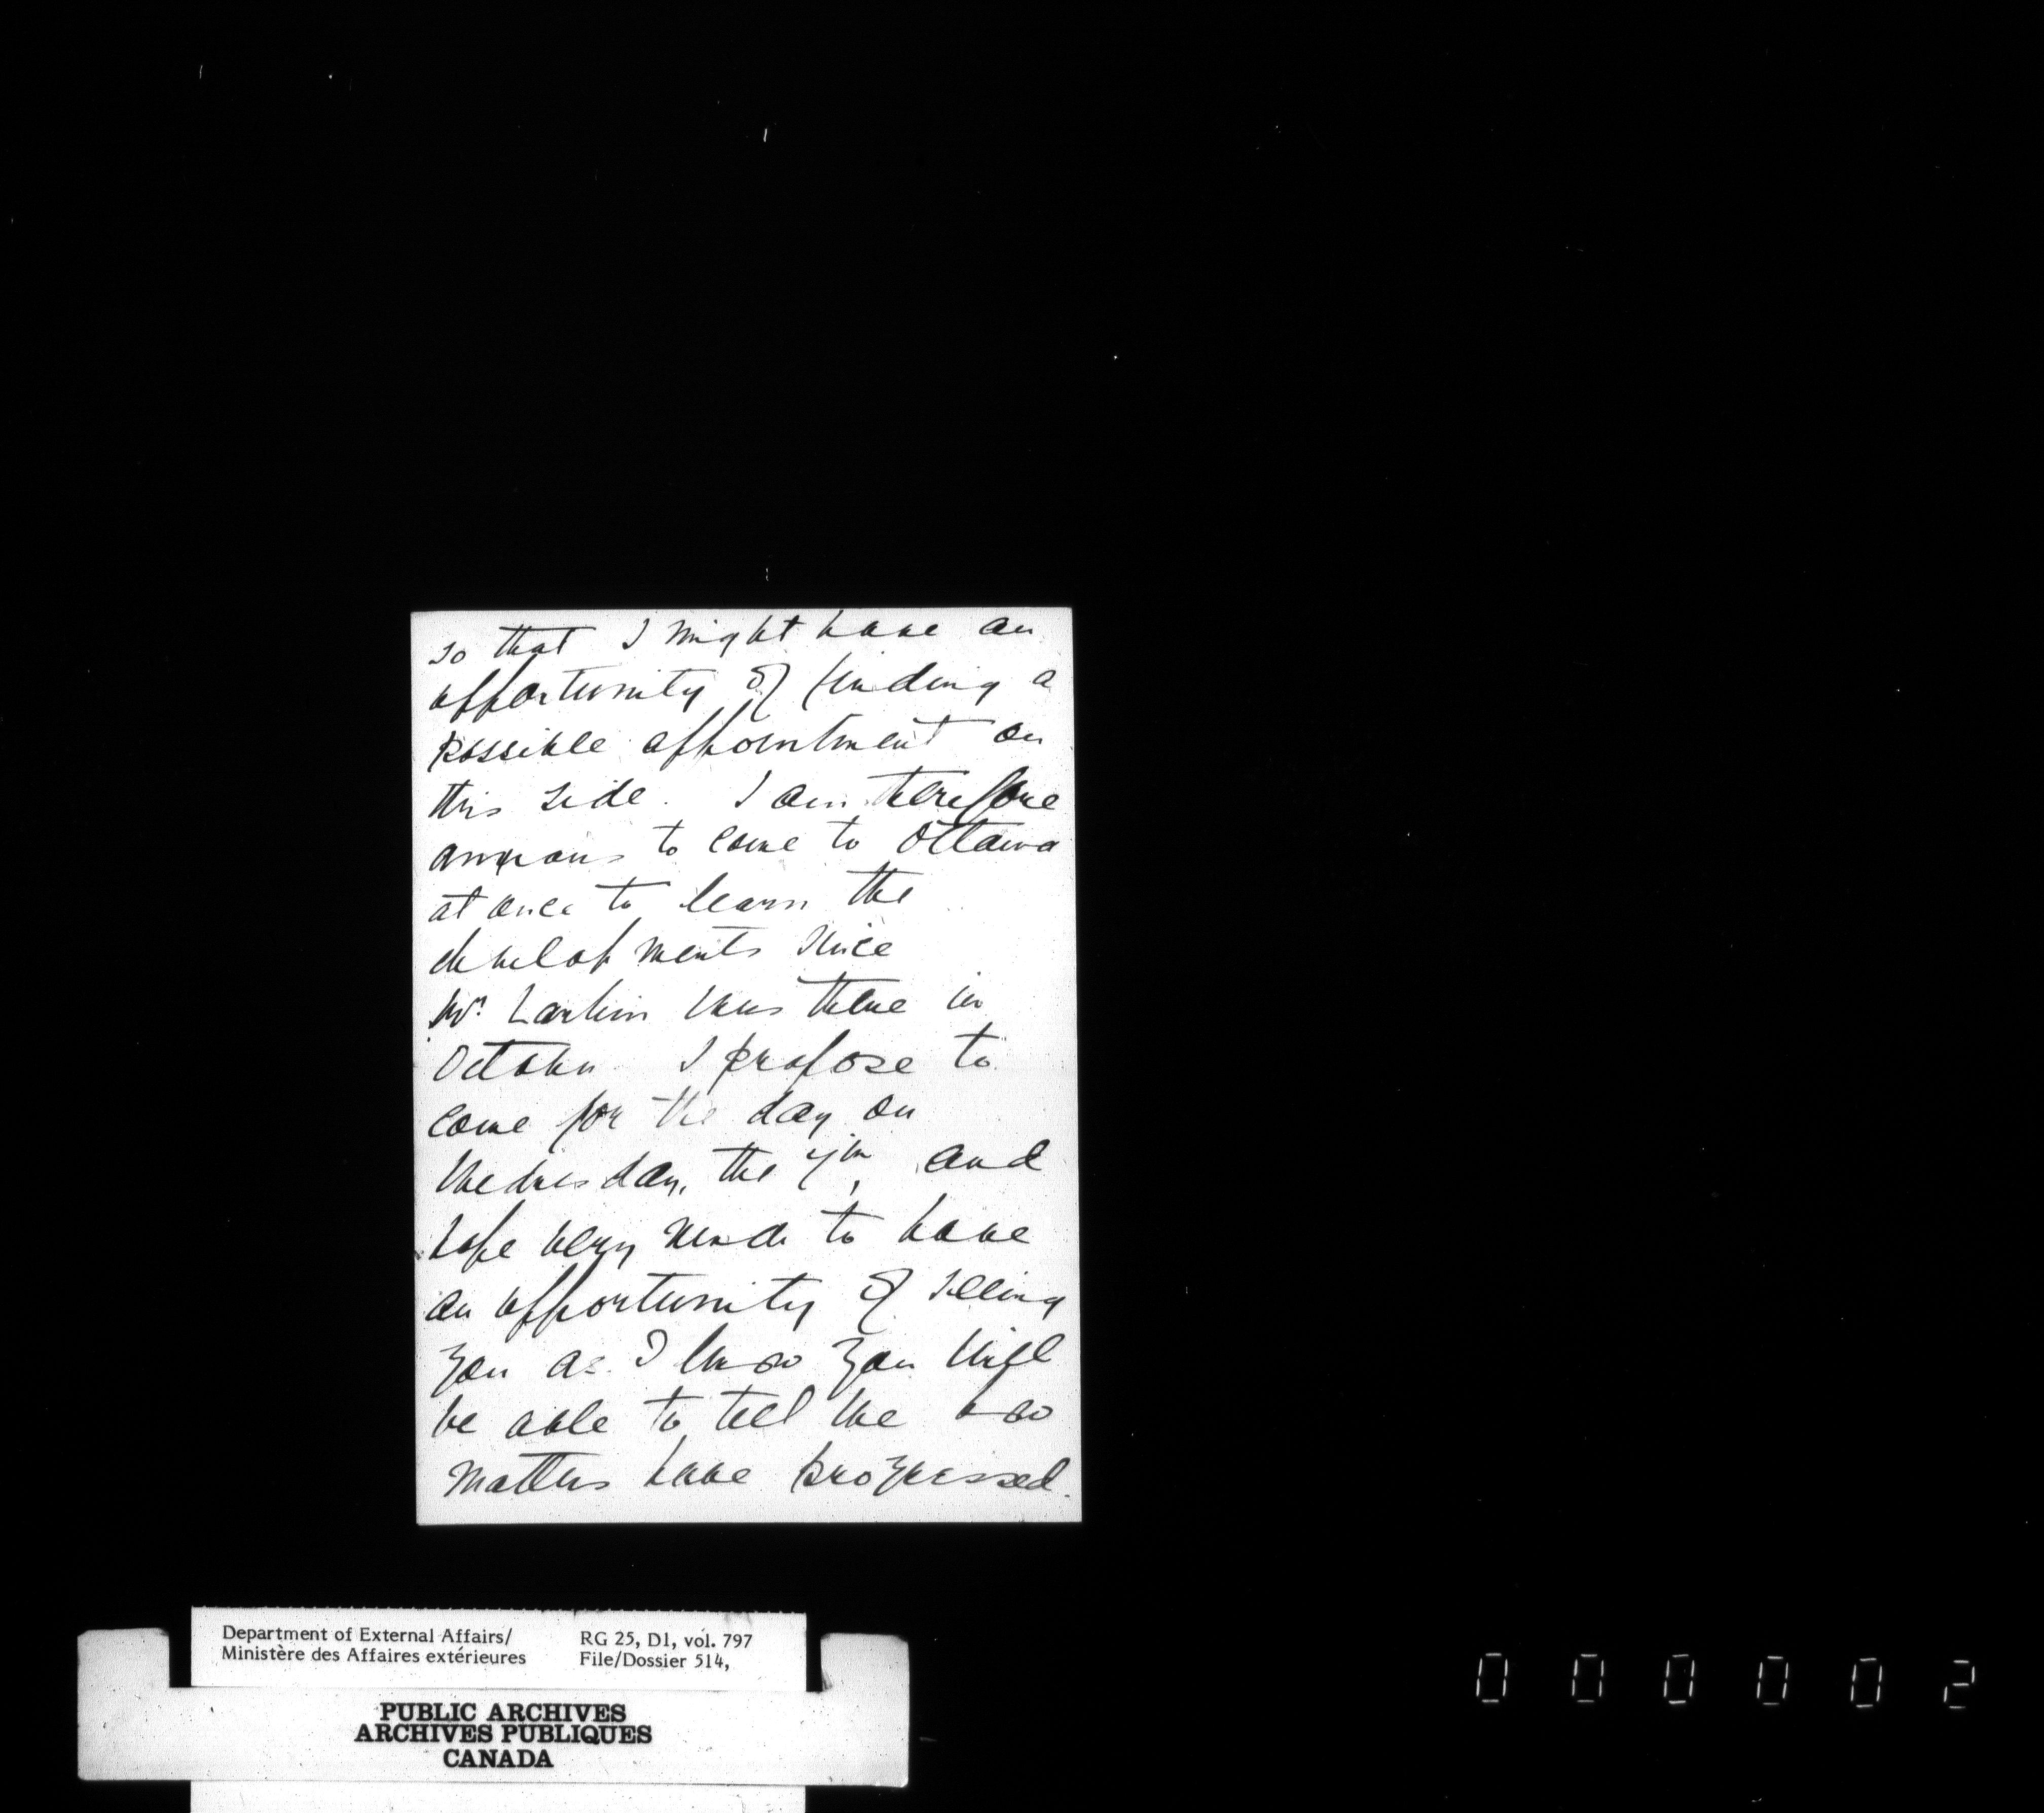 so that I might have an
opportunity of finding a
possible appointment on
this side. I am therefore
anxious to come to Ottawa
at once to learn the
developments since
Mr. Larkin was there in
October. I propose to
come for the day on
Wednesday, the 7th, and
hope very much to have
an opportunity of seeing
you as I know you will
be able to tell me how
matters have progressed.
Department of External Affairs/ RG 25, D1, vol. 797
Ministère des Affaires extérieures File/Dossier 514,
PUBLIC ARCHIVES
ARCHIVES PUBLIQUES
CANADA
0 0 0 0 0 2